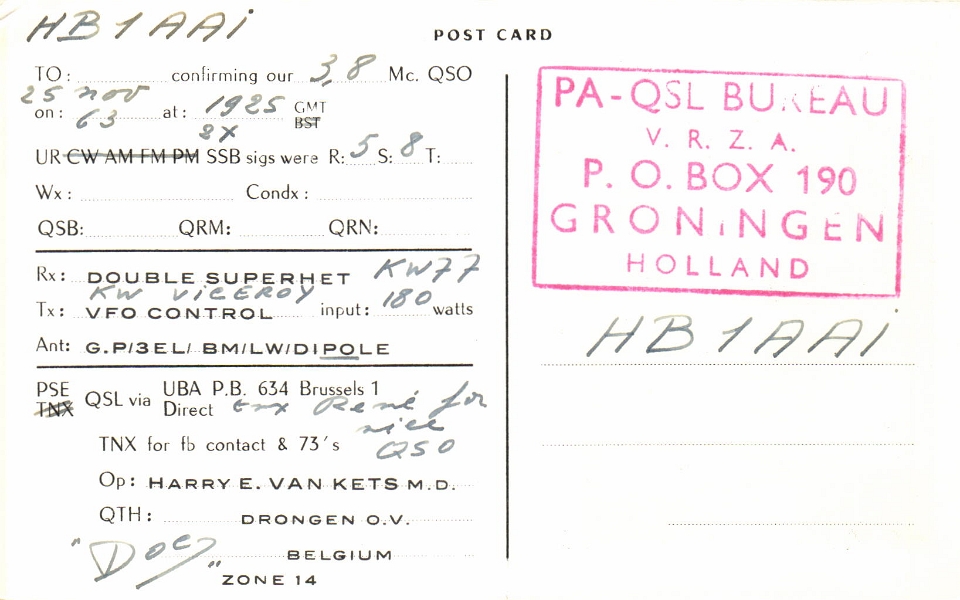 HB1AAi
POST CARD
TO: confirming our 3,8 Mc. QSO
25 nov
on: 63 at: 1925 GMT BST
2X
UR CW AM FM PM SSB sigs were R: 5 S: 8 T:
Wx: Condx:
QSB: QRM: QRN:
Rx: DOUBLE SUPERHET KW77
KW VICEROY
Tx: VFO CONTROL input: 180 watts
Ant: G.P/3EL/ BM/LW/DIPOLE
PSE TNX QSL via UBA P.B. 634 Brussels 1
Direct tnx René for
nice
TNX for fb contact & 73's QSO
Op: HARRY E. VAN KETS M.D.
QTH: DRONGEN O.V.
"Doc" BELGIUM
ZONE 14
PA-QSL BUREAU
V. R. Z. A.
P. O. BOX 190
GRONINGEN
HOLLAND
HB1AAi